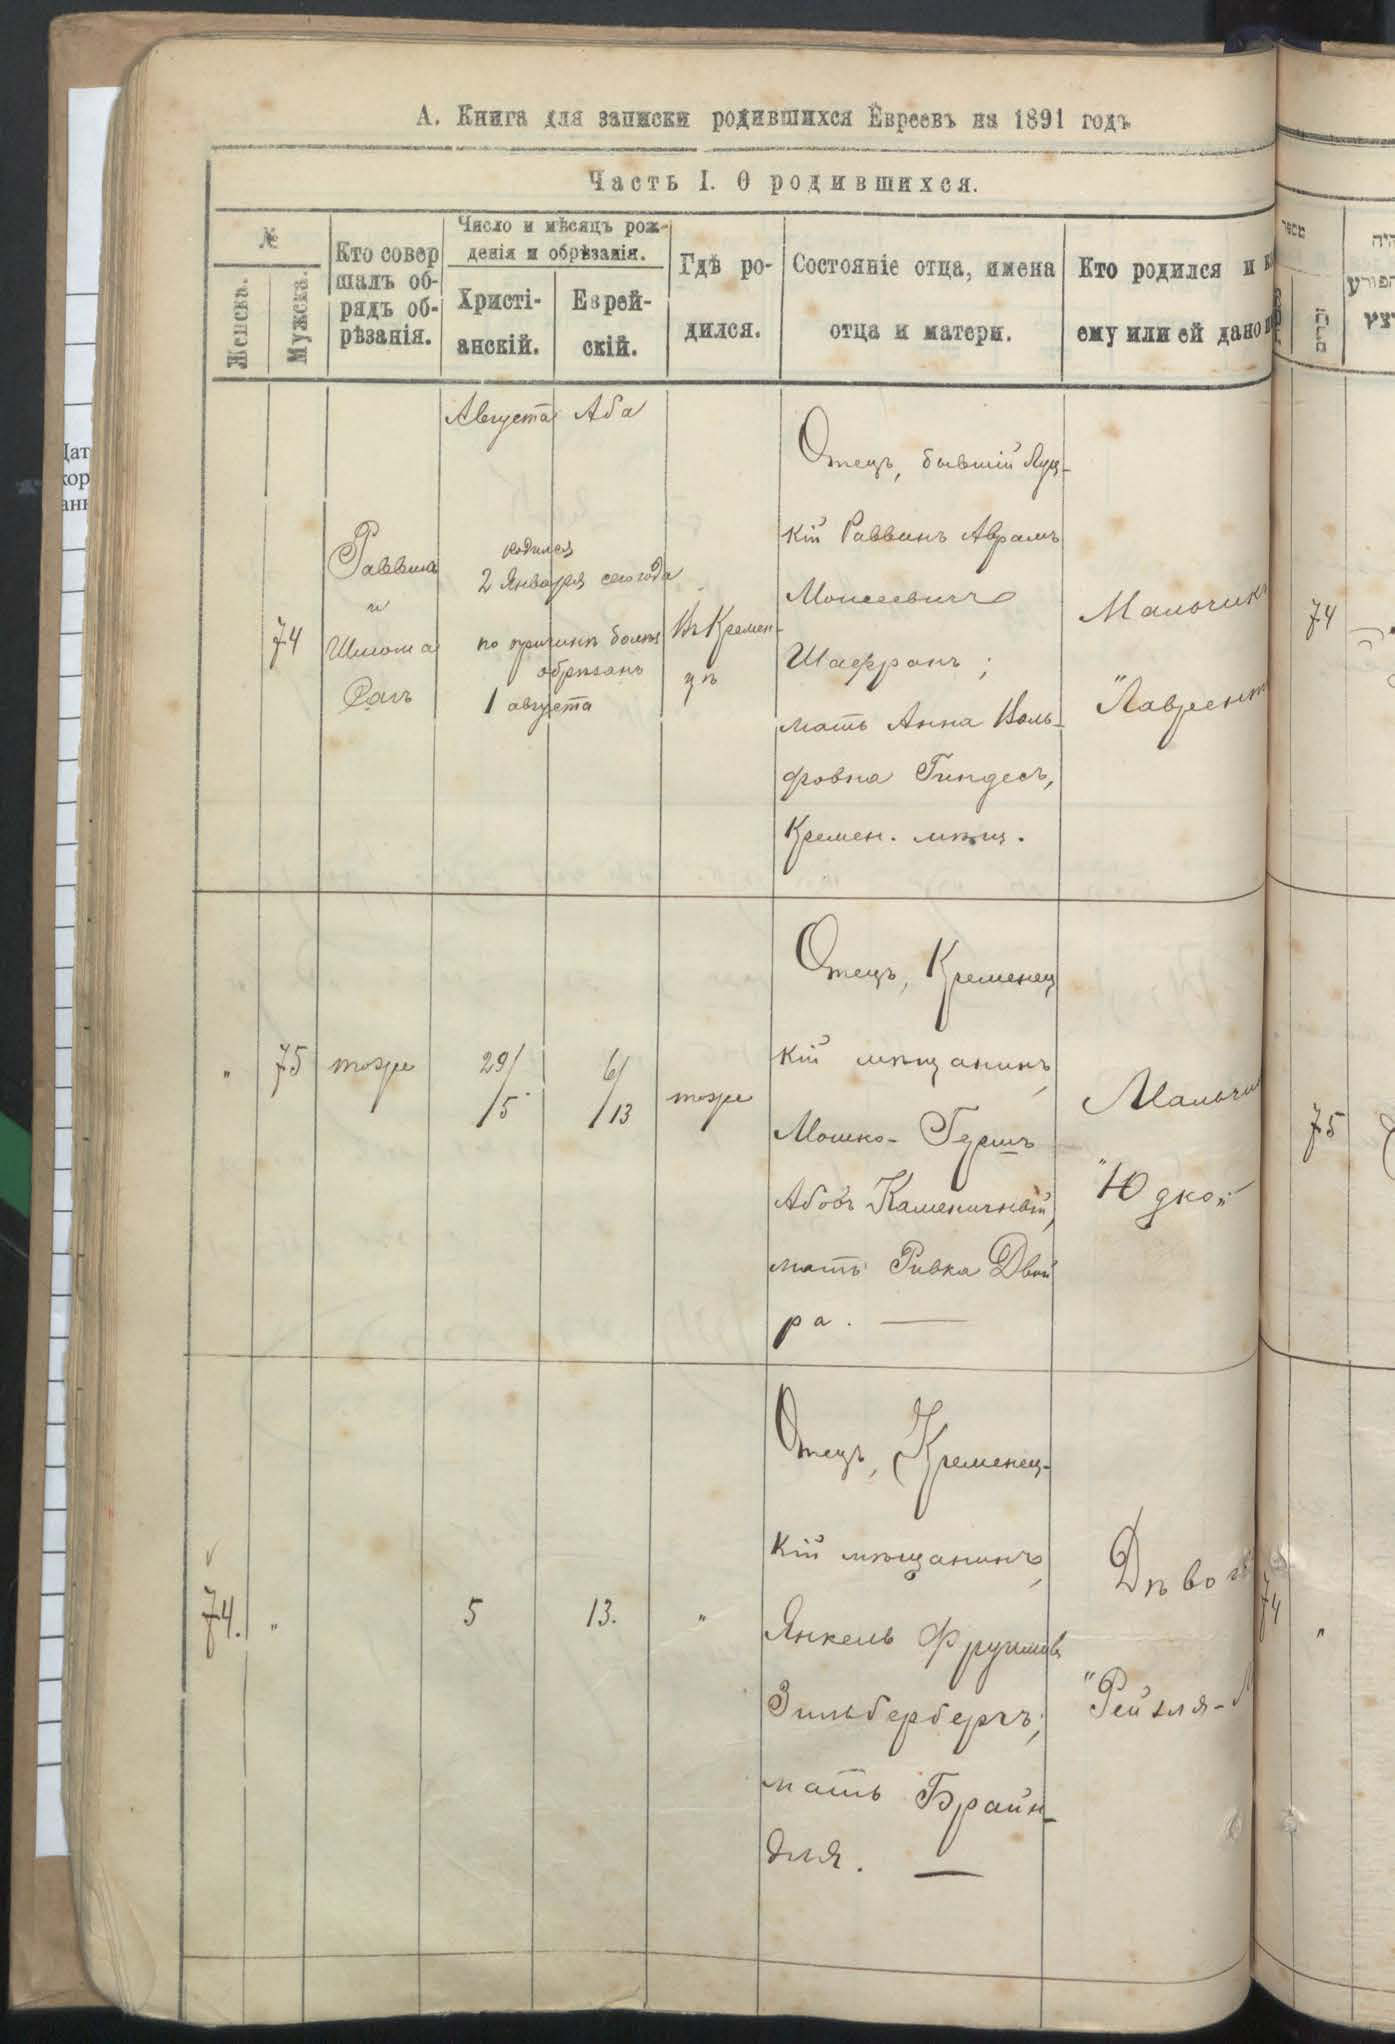 А. Книга для записки родившихся Евреевъ на 1891 годъ
Часть I. О родившихся.
№
Женска.
Мужска.
Кто совер
шалъ об-
рядъ об-
рѣзанія.
Число и мѣсяцъ рож-
денія и обрѣзанія.
Христі-
анскій.
Еврей-
скій.
Гдѣ ро-
дился.
Состояніе отца, имена
отца и матери.
Кто родился и
ему или ей дано
Августа
Аба
74
Раввина
и
Шлома
родился
2 Января сего года
по причинѣ болѣз
обрѣзанъ
1 августа
Въ Кремен-
цѣ
Отецъ, бывшій Луц-
кій Раввинъ Аврамъ
Моисеевичъ
Шаффранъ;
мать Анна Воль-
фовна Гиндесъ,
Кремен. мѣщ.
Мальчикъ
"Лаврент
"
75
тоже
29/5
6/13
тоже
Отецъ, Кременец
кій мѣщанинъ,
Мошко-Гершъ
Абовъ Каменичный,
мать Ривка Двой
ра. —
Мальчи
"Юдко"
74.
"
5
13.
"
Отецъ, Кременец-
кій мѣщанинъ,
Янкель Фруимовъ
Зильбербергъ;
мать Брайн-
для. —
Дѣво
"Рейзля-М
מספר
זכרים
74
75
74
"